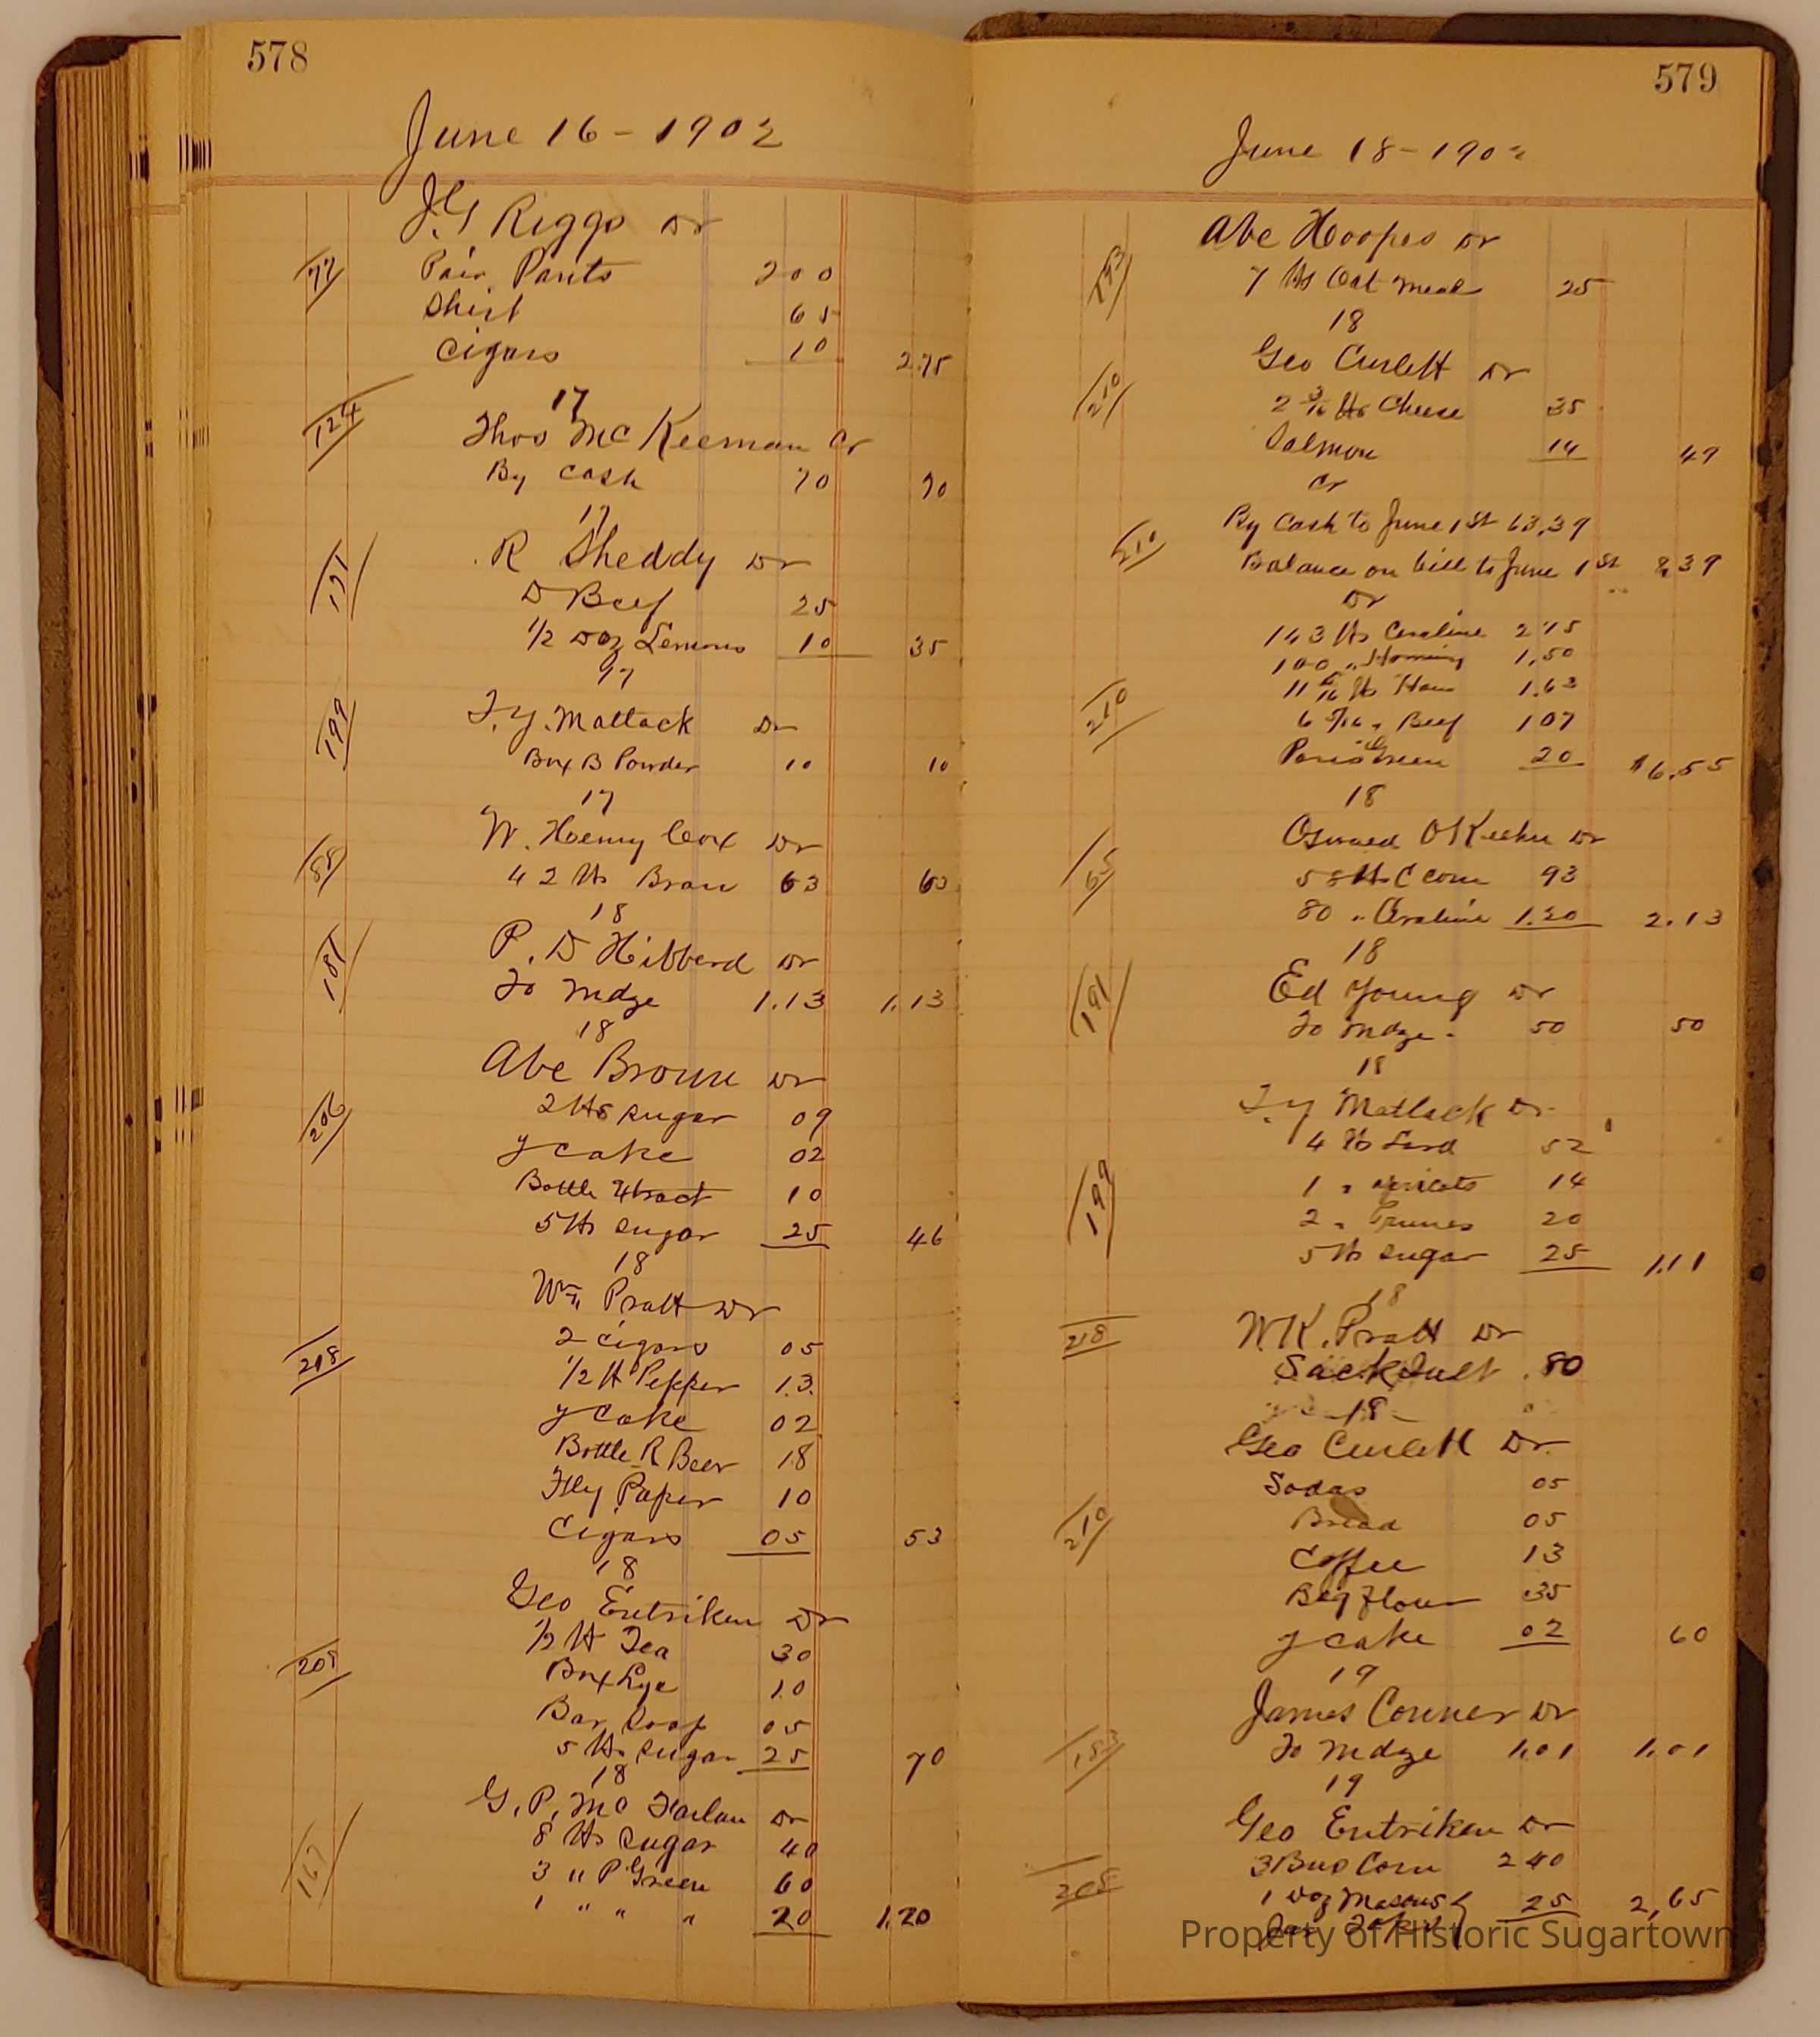 578
June 16 - 1902
J.G Riggs Dr
77
Pair Pants 200
Shirt 65
Cigars 10 2.75
17
124
Thos McKeeman Cr
By Cash 70 70
17
R Sheddy Dr
191
D Beef 25
1/2 Doz Lemons 10 35
17
199
T.Y. Matlack Dr
Box B Powder 10 10
17
W. Henry Cox Dr
88
42 lbs Bran 63 63
18
181
P. D Hibberd Dr
To Mdze 1.13 1.13
18
Abe Brown Dr
206
2 lbs sugar 09
y cake 02
Bottle Xtract 10
5 lbs sugar 25 46
18
Wm Pratt Dr
218
2 cigars 05
1/2 lb Pepper 13
y cake 02
Bottle R Beer 18
Fly Paper 10
Cigars 05 53
18
Geo Entriken Dr
1/2 lb Tea 30
205
Box Lye 10
Bar Soap 05
5 lbs sugar 25 70
18
G. P. Mc Farlan Dr
8 lbs Sugar 40
167
3 " P Green 60
1 " " " 20 1.20
579
June 18 - 1902
Abe Hoopes Dr
193
7 lbs Oat meal 25
18
Geo Curlett Dr
210
2 3/16 lbs Cheese 35
Salmon 14 49
Cr
By Cash to June 1st 63.39
210
Balance on bill to June 1st 8.39
Dr
143 lbs Ceraline 2 15
100 " Hominy 1.50
11 lbs Ham 1.63
210
6 " Beef 107
Paris Green 20 $6.55
18
Dr
65
58 lbs C corn 93
80 " Ceraline 1.20 2.13
18
191
Ed Young Dr
To Mdze. 50 50
18
T.Y Matlack Dr.
4 lb Lard 52
199
1 " Apricots 14
2 " Prunes 20
5 lb sugar 25 1.11
18
218
W.K. Pratt Dr
Sack Salt .80
18
Geo Curlett Dr.
Sodas 05
210
Bread 05
Coffee 13
Bag Flour 35
y cake 02 60
19
James Conner Dr
183
To Mdze 1.01 1.01
19
Geo Entriken Dr
205
3 Bus Corn 240
1 Doz Masons 25 2,65
Jar
Property of Historic Sugartown